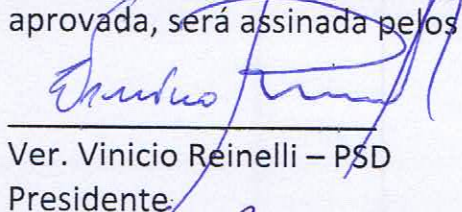 aprovada, será assinada pelos
Ver. Vinicio Reinelli – PSD
Presidente